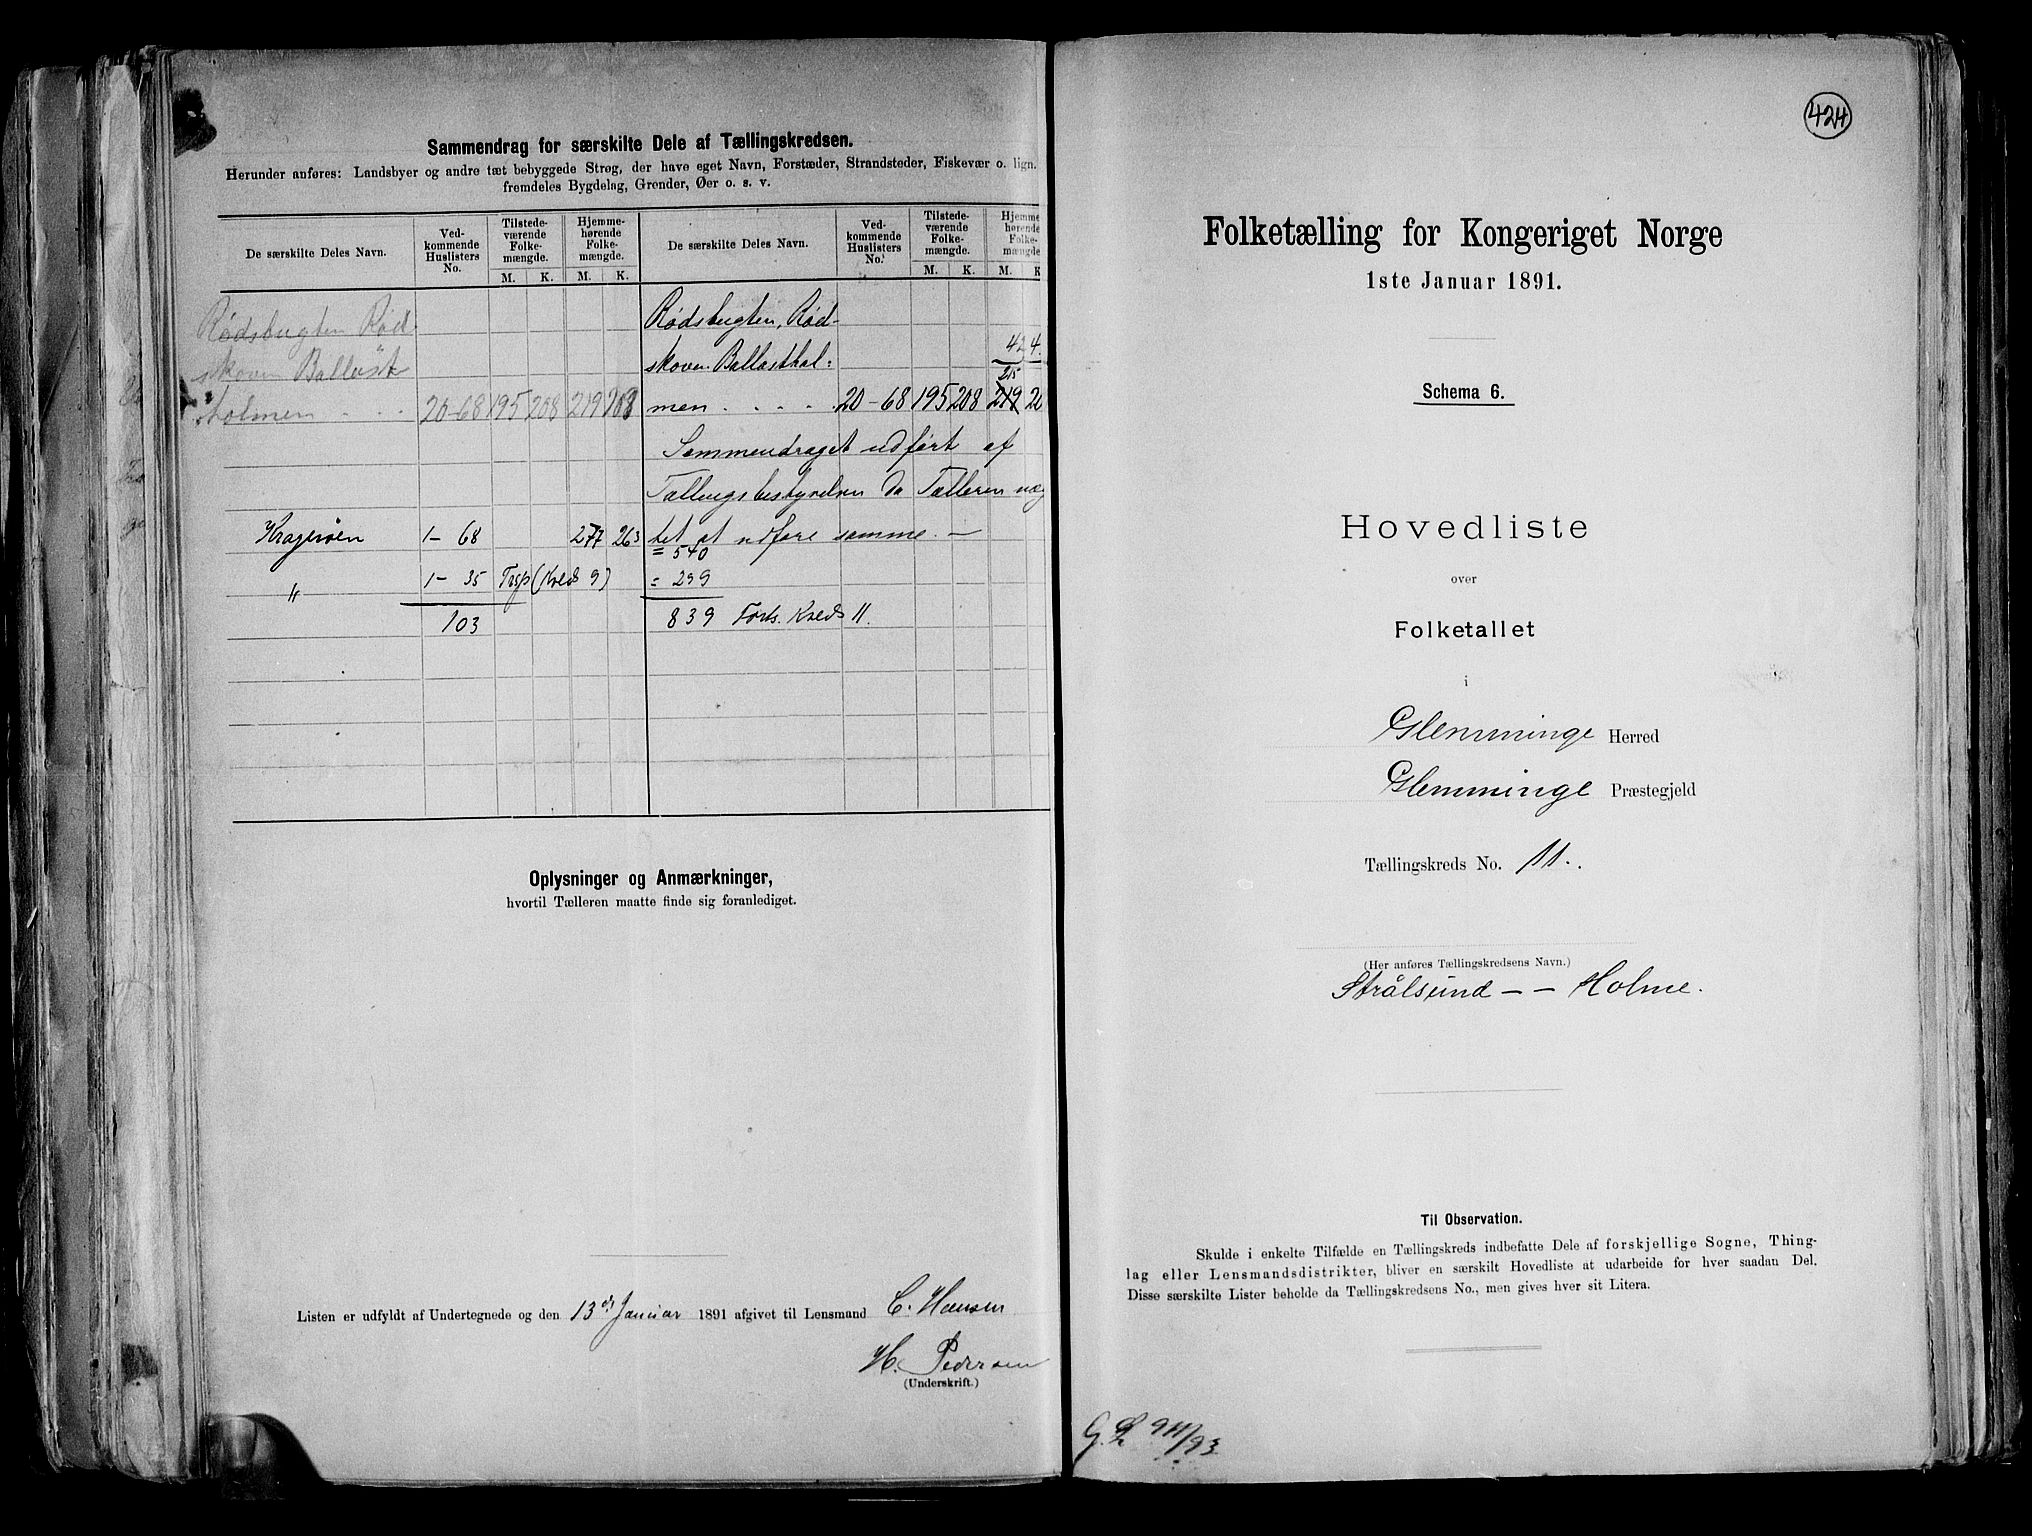 Sammendrag for særskilte Dele af Tællingskredsen.
Herunder anføres: Landsbyer og andre tæt bebyggede Strøg, der have eget Navn, Forstæder, Strandsteder, Fiskevær o. lign.
fremdeles Bygdelag, Grender, Øer o. s. v.
De særskilte Deles Navn. Ved-kommende Huslisters No. Tilstede-værende Folke-mængde. Hjemme-hørende Folke-mængde. De særskilte Deles Navn. Ved-kommende Huslisters No. Tilstede-værende Folke-mængde. Hjemme-hørende Folke-mængde
M. K. M. K. M. K. M. K
Rødsbugten Rød Rødsbugten, Rød-
skoven Ballast skoven Ballasthol= 42 4
215
holmen . . . 20-68 195 208 219 208 men . . . . . 20-68 195 208 219 20
Sammendraget udført af
Tællingsbestyrelsen da Tælleren næg
Kragerøen 1- 68 277 263 tet at udføre samme. —
= 540
" 1- 35 Trsp (Kreds 9) = 299
103 839 Forts. Kreds 11.
Oplysninger og Anmærkninger,
hvortil Tælleren maatte finde sig foranlediget.
Listen er udfyldt af Undertegnede og den 13de Januar 1891 afgivet til Lensmand C. Hansen
H. Pedersen
(Underskrift.)
424
Folketælling for Kongeriget Norge
1ste Januar 1891.
Schema 6.
Hovedliste
over
Folketallet
i
Glemminge Herred
Glemminge Præstegjeld
Tællingskreds No. 11.
(Her anføres Tællingskredsens Navn.)
Strålsund — — Holme.
Til Observation.
Skulde i enkelte Tilfælde en Tællingskreds indbefatte Dele af forskjellige Sogne, Thing-
lag eller Lensmandsdistrikter, bliver en særskilt Hovedliste at udarbeide for hver saadan Del.
Disse særskilte Lister beholde da Tællingskredsens No., men gives hver sit Litera.